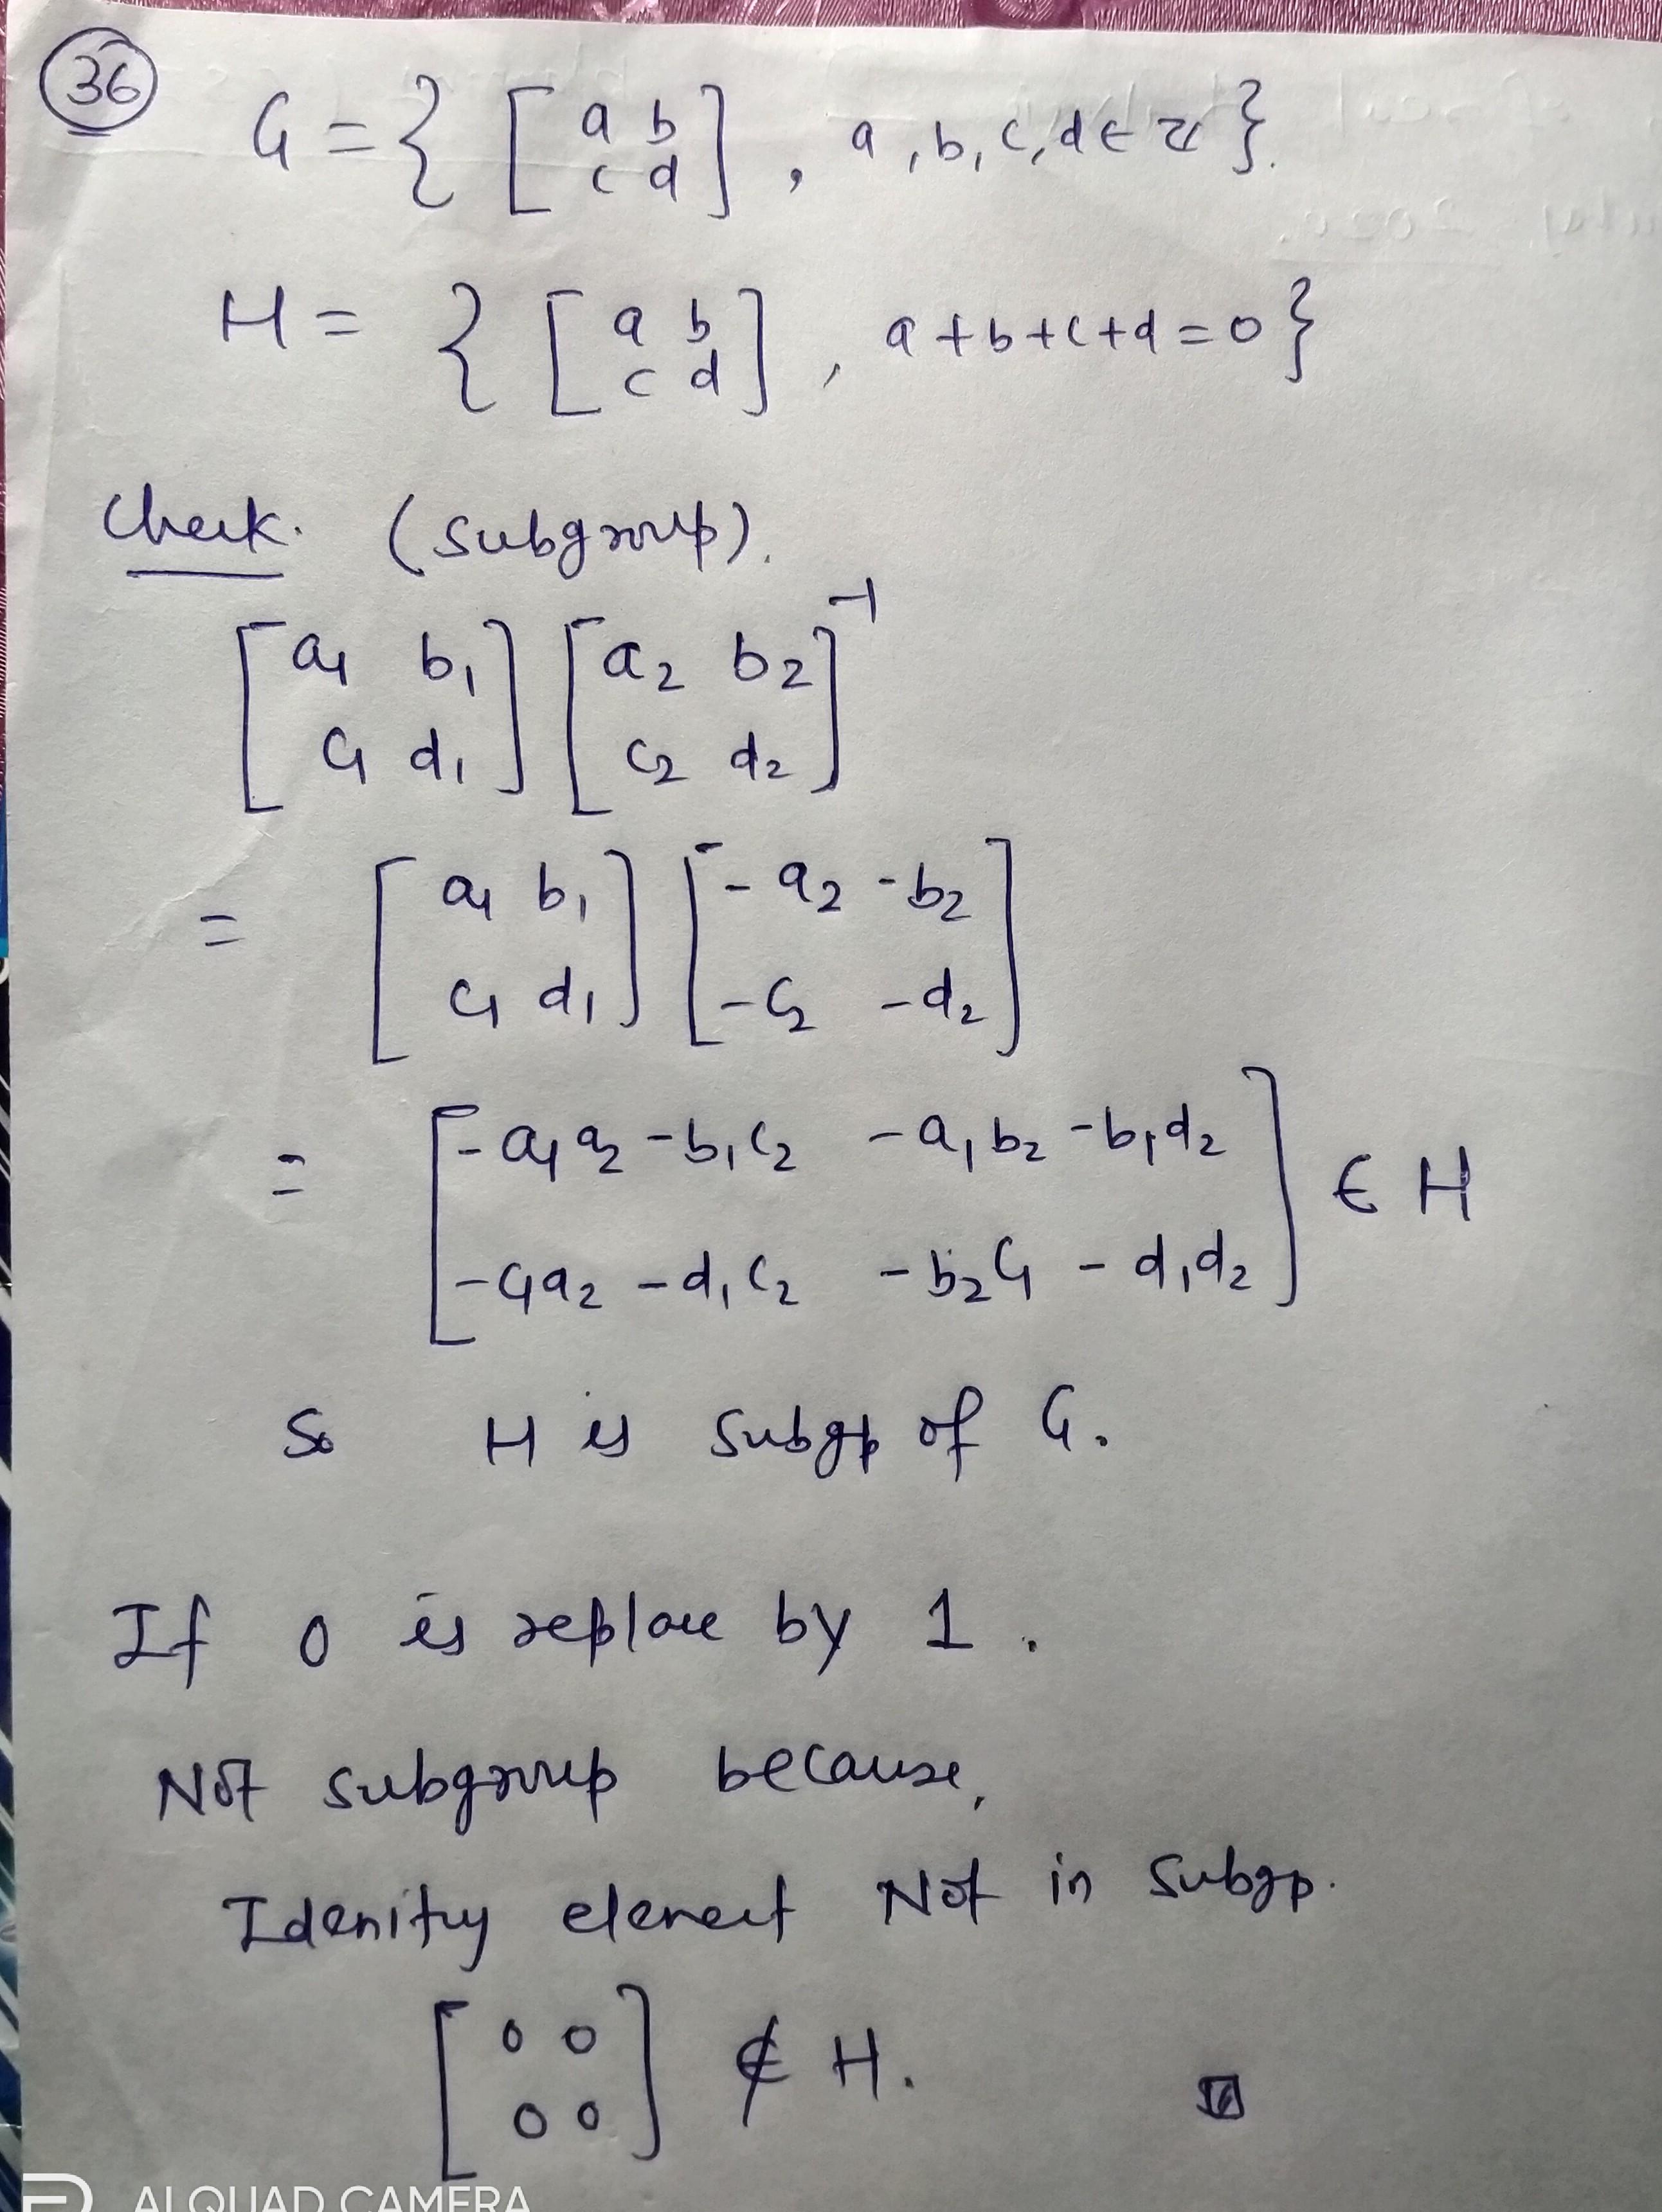 36
G = { [ a b
c d ] , a, b, c, d ∈ ℤ }.
H = { [ a b
c d ] , a + b + c + d = 0 }
Check. (subgroup).
[ a₁ b₁ ] [ a₂ b₂ ]⁻¹
[ c₁ d₁ ] [ c₂ d₂ ]
= [ a₁ b₁ ] [ -a₂ -b₂ ]
[ c₁ d₁ ] [ -c₂ -d₂ ]
= [ -a₁a₂ -b₁c₂ -a₁b₂ -b₁d₂ ] ∈ H
[ -c₁a₂ -d₁c₂ -b₂c₁ - d₁d₂ ]
So H is subgp of G.
If 0 is replace by 1.
Not subgroup because,
Idenitry element Not in subgp.
[ 0 0
0 0 ] ∉ H.
ALQUAD CAMERA